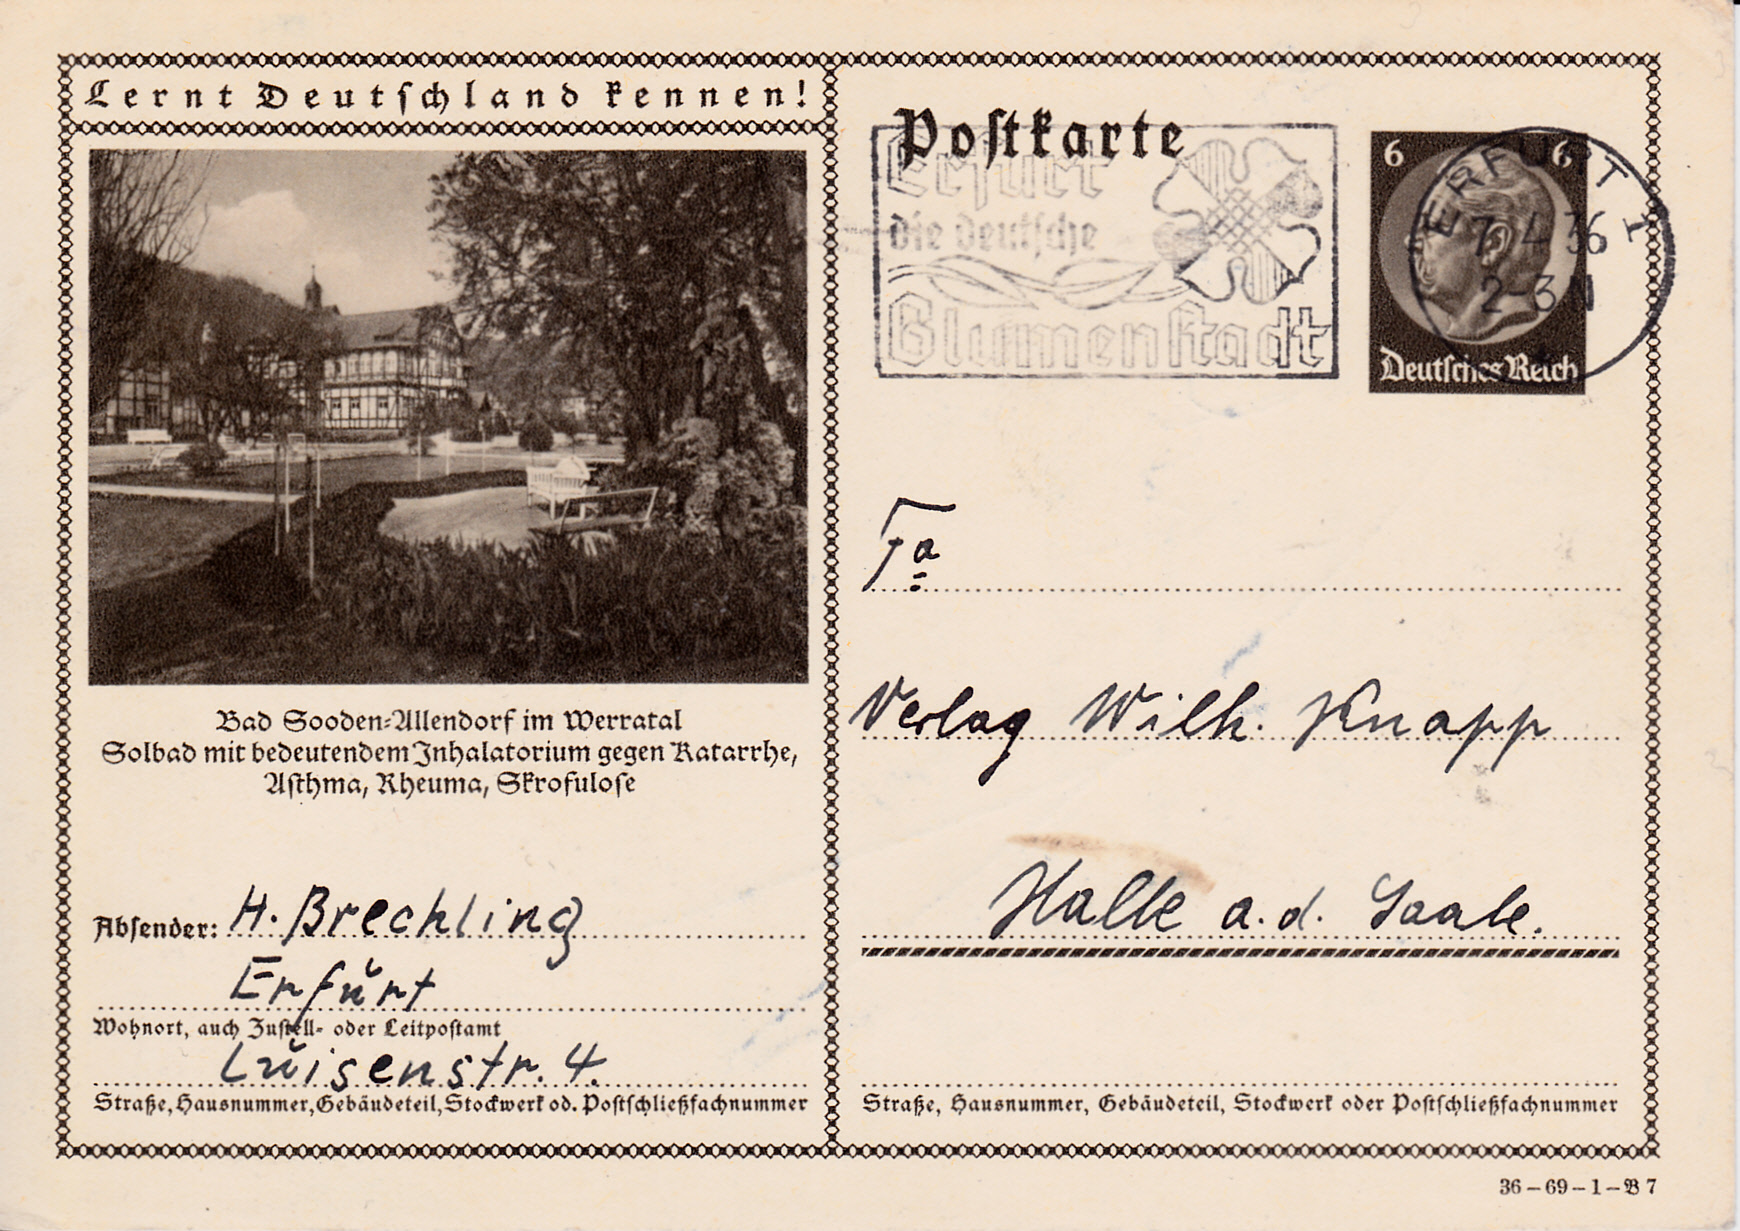 Lernt Deutschland kennen!
Bad Sooden-Allendorf im Werratal
Solbad mit bedeutendem Inhalatorium gegen Katarrhe,
Asthma, Rheuma, Skrofulose
Absender: H. Brechling
Erfurt
Wohnort, auch Zustell- oder Leitpostamt
Luisenstr. 4.
Straße, Hausnummer, Gebäudeteil, Stockwerk od. Postschließfachnummer
Postkarte
Erfurt
die deutsche
Blumenstadt
6 6
Deutsches Reich
ERFURT 1
7.4.36
2-3 N
Fa
Verlag Wilh. Knapp
Halle a. d. Saale.
Straße, Hausnummer, Gebäudeteil, Stockwerk oder Postschließfachnummer
36-69-1-B 7